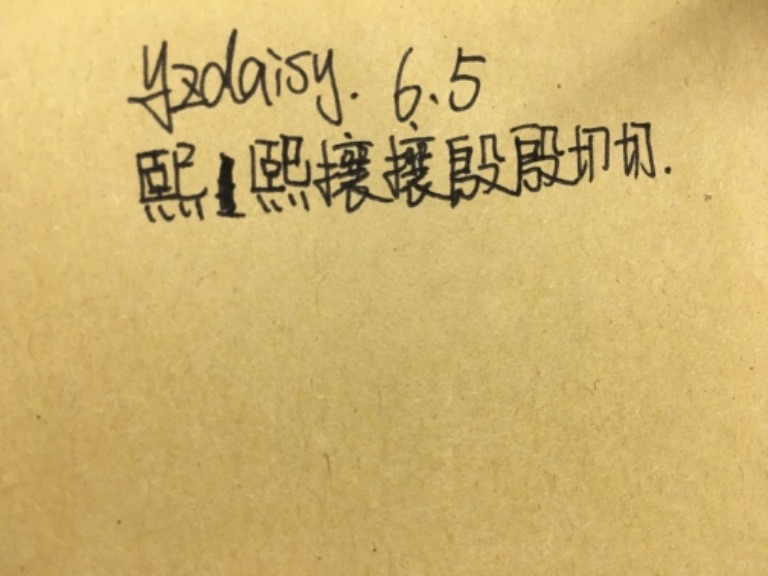 yzdaisy. 6.5
熙熙攘攘殷殷切切.